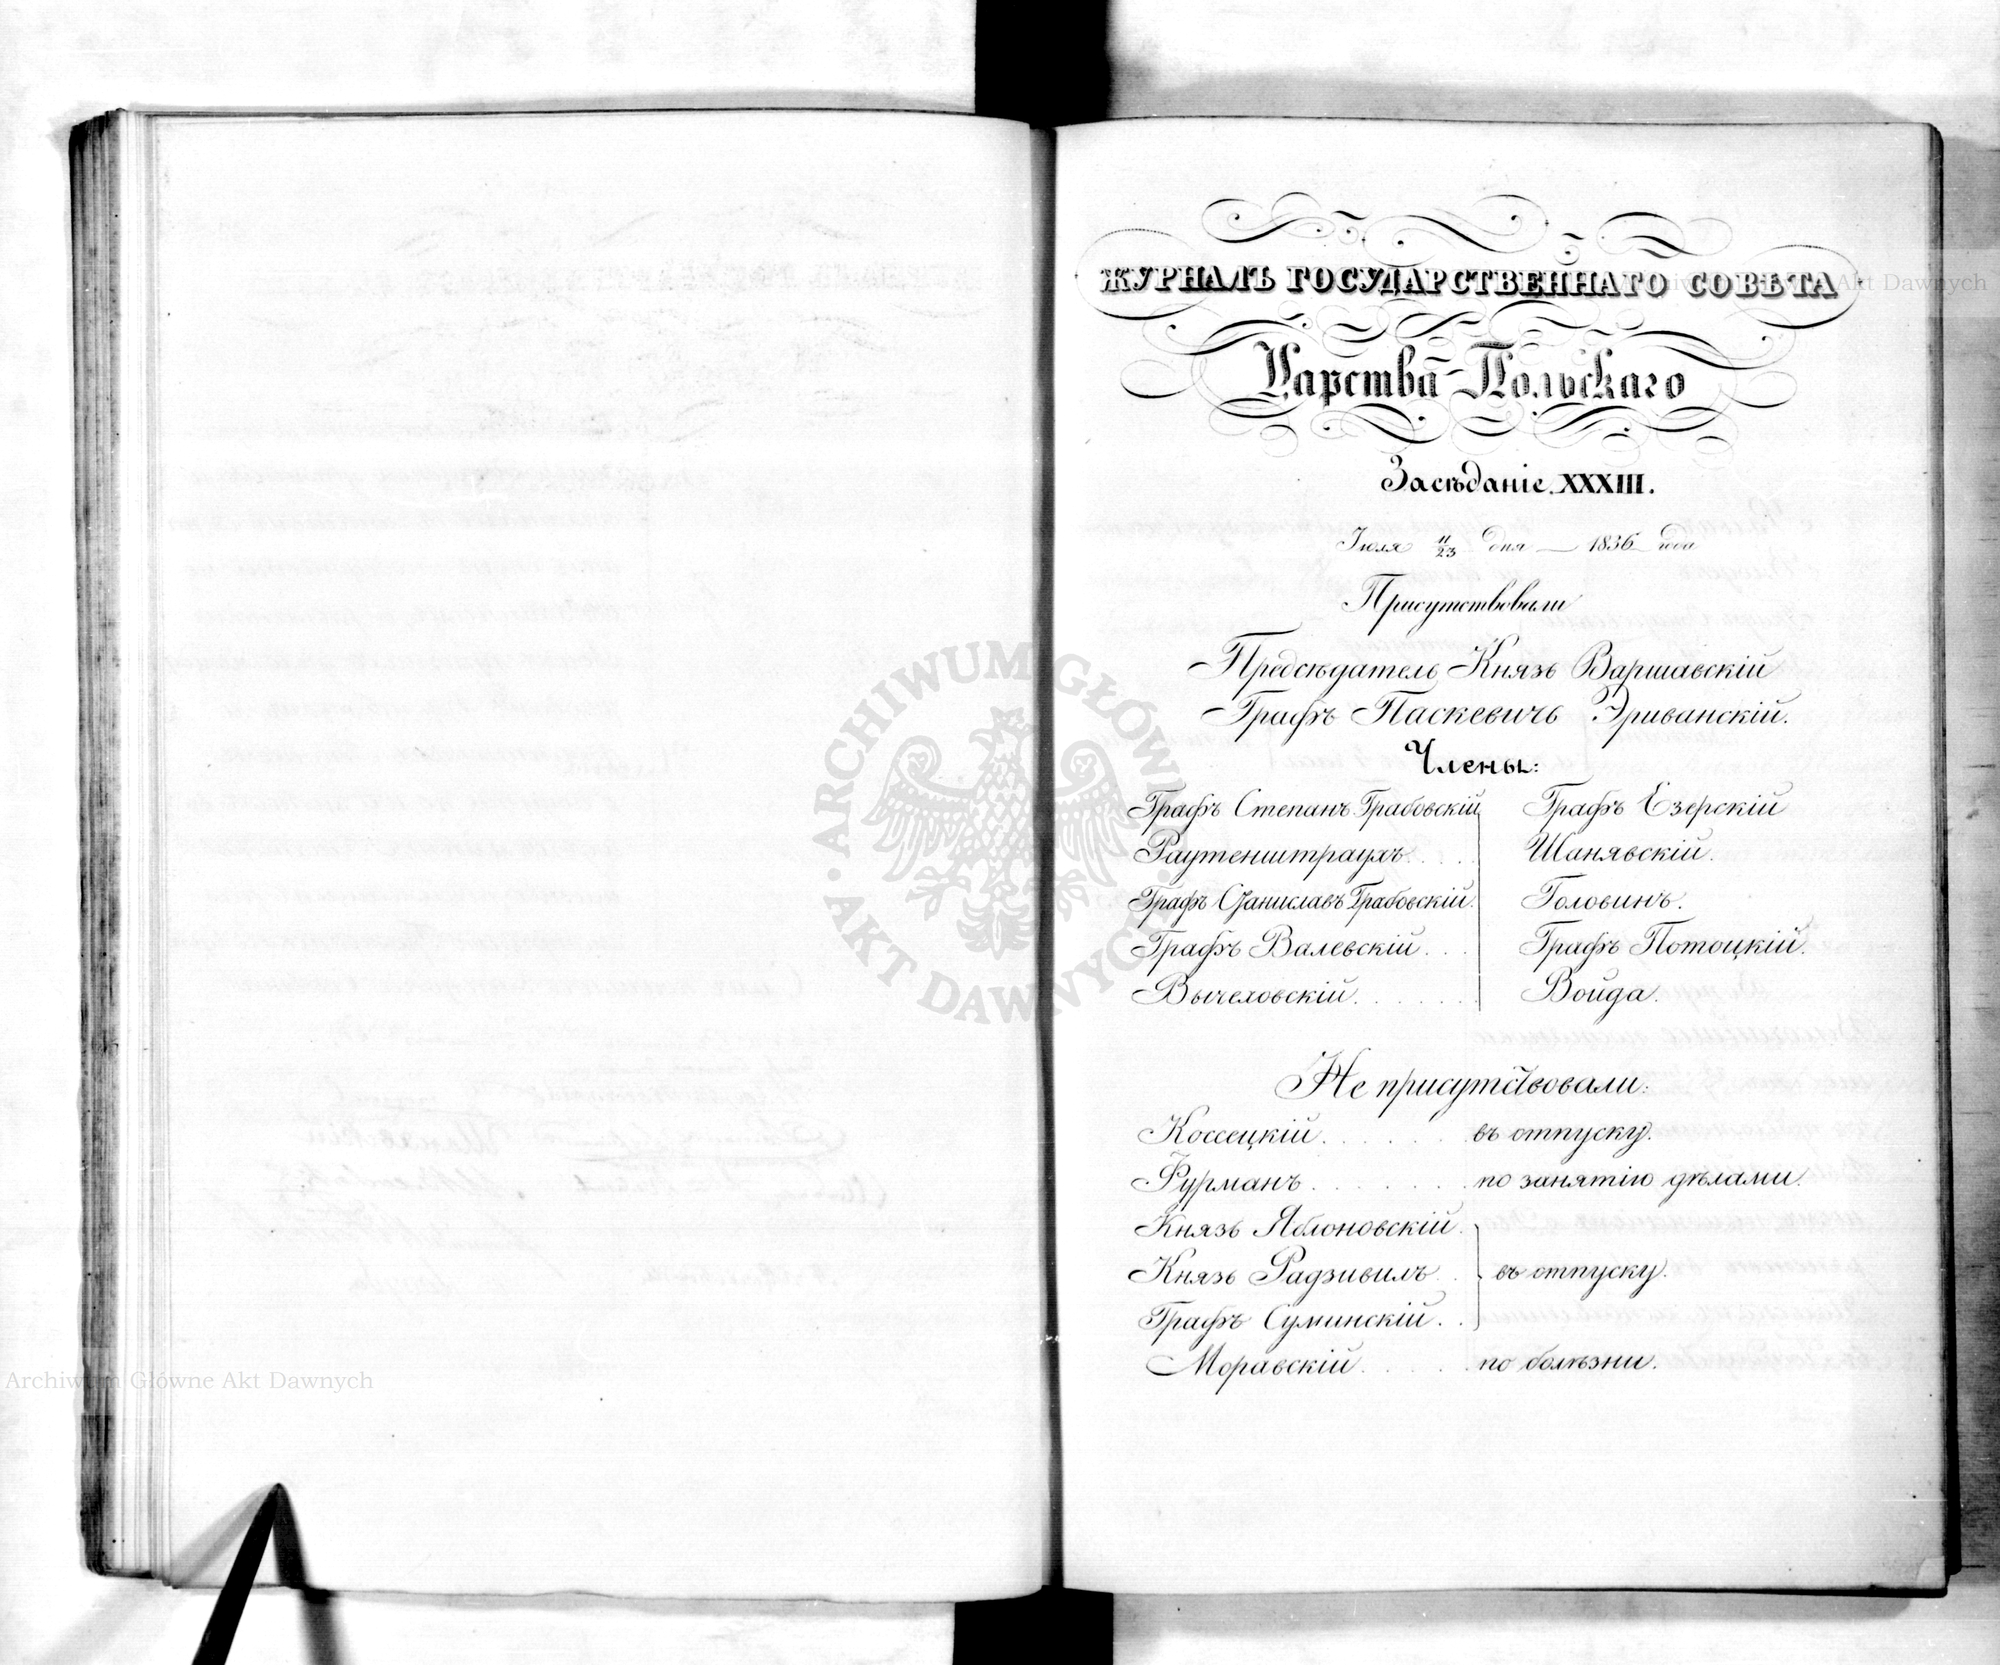 ЖУРНАЛЪ ГОСУДАРСТВЕННАГО СОВѢТА
Царства Польскаго
Засѣданіе XXXIII.
Іюля 11/23 дня — 1836 года
Присутствовали
Предсѣдатель Князь Варшавскій
Графъ Паскевичъ Эриванскій.
Члены:
Графъ Степанъ Грабовскій Графъ Езерскій
Раутенштраухъ. . . . Шанявскій.
Графъ Станиславъ Грабовскій. Головинъ.
Графъ Валевскій . . . Графъ Потоцкій.
Вычеховскій. . . . . . Войда.
Не присутствовали:
Коссецкій. . . . . . . въ отпуску.
Фурманъ . . . . . . . по занятію дѣлами.
Князь Яблоновскій.
Князь Радзивилъ . . въ отпуску.
Графъ Суминскій. .
Моравскій. . . . . . по болѣзни.
ARCHIWUM GŁÓWNE AKT DAWNYCH
Archiwum Główne Akt Dawnych
Akt Dawnych